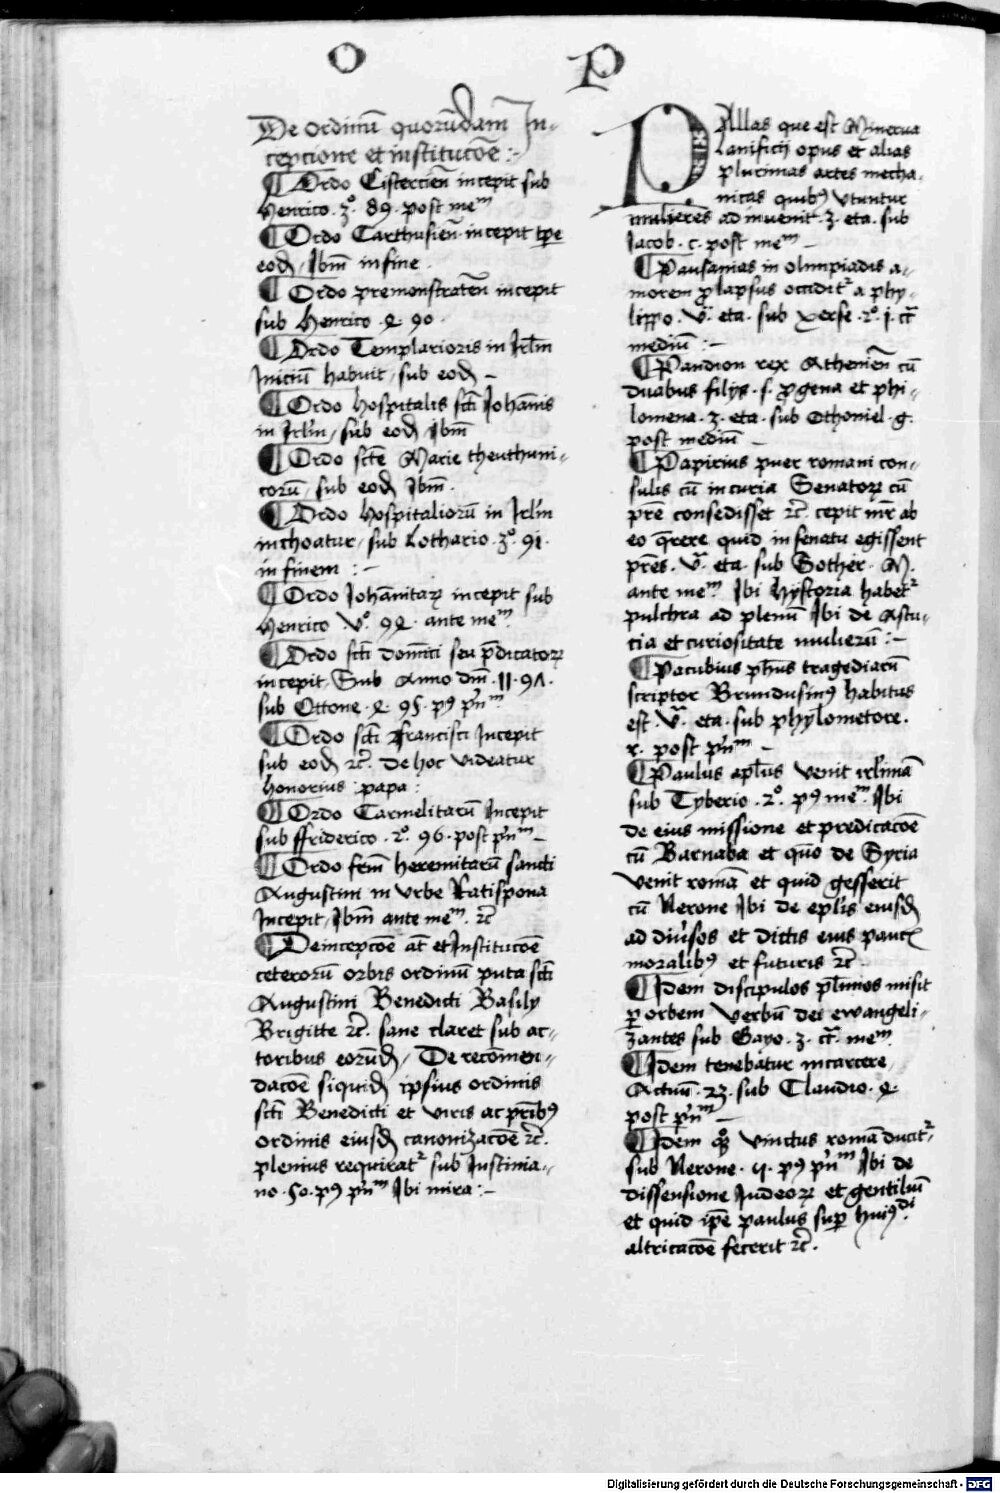 O
P
De ordinū quorūdam In-
cepcione et institucōe :-
¶ Ordo Cistercieñ incepit sub
Henrico . 3º . 89 . post meᵐ
¶ Ordo Carthusieñ . incepit tp̄e
eod̄ / Ibm̄ in fine .
¶ Ordo premonstrateñ incepit
sub Henrico . 4 . 90 .
¶ Ordo Templarioris in Irl̄m
Iniciū habuit / sub eod̄ –
¶ Ordo hospitalis scti Johānis
in Irl̄m / sub eod̄ Ibm̄
¶ Ordo scte Marie theuthuni-
corū / sub eod̄ Ibm̄ .
¶ Ordo hospitaliorū in Irl̄m
inchoatur / sub Lothario . 3º . 91 .
in finem : –
¶ Ordo Johānitaꝝ incepit sub
Henrico Vº . 94 . ante meᵐ
¶ Ordo scti domīci seu p̄dicatoꝝ
incepit / Sub Anno dm̄ . 11 . 97 .
sub Ottone . 4 . 95 . pꝰ pnᵐ
¶ Ordo scti francisci Incepit
sub eod̄ ⁊c̄ . De hoc videatur
honorius papa :
¶ Ordo Carmelitarū Incepit
sub ffriderico . 2º . 96 . post pnᵐ –
¶ Ordo frm̄ heremitarū sancti
Augustini in Vrbe Ratispona
Incepit / Ibm̄ ante meᵐ . ⁊c̄
¶ De incepcōe at̄ et Institucōe
ceterorū orbis ordinū puta scti
Augustini Benedicti Basilÿ
Brigitte ⁊c̄ . sane claret sub ac-
toribus eorūd̄ / De recōmen-
dacōe siquid̄ ipsius ordinis
scti Benedicti et viris ac p̄ribꝰ
ordinis eiusd̄ canonizacōe ⁊c̄ .
plenius requirat² sub Iustinia-
no . 50 . pꝰ pnᵐ Ibi mira : –
PAllas que est Minerva
Lanificij opus et alias
plurimas artes mecha-
nicas quibꝰ Vtuntur
mulieres ad invenit . 3 . eta . sub
Jacob . c . post meᵐ –
¶ Pausanias in olimpiadis a-
morem ꝓlapsus occidit² a phy-
lippo . Vᵃ . eta . sub xerse . 2º . i . cᵗ̄
mediū : –
¶ Pandion rex Athenieñ cū
duabus filijs . s . ꝓgena et phi-
lomena . 3 . eta . sub Othoniel . g .
post mediū –
¶ Papirius puer romani con-
sulis cū in curia Senatoꝝ cū
p̄re consedisset ⁊c̄ . cepit mr̄ ab
eo q̄rere quid in senatu egissent
p̄res . Vᵃ . eta . sub Sother . M .
ante meᵐ Ibi Hÿstoria habet²
pulchra ad plenū Ibi de Astu-
tia et curiositate mulierū : –
¶ Pacubius ph̄us tragediarū
scriptor Brundusinꝰ habitus
est . Vᵃ . eta . sub phylometore .
r . post pnᵐ –
¶ Paulus apl̄us venit irl̄imā
sub Tyberio . 2º . pꝰ meᵐ Ibi
de eius missione et predicacōe
cū Barnaba et quō de Syria
venit romā et quid gesserit
cū Nerone Ibi de epl̄is eiusd̄
ad div̓sos et dictis eius paucꝭ
moralibꝰ et futuris ⁊c̄
¶ Idem discipulos pl̄imos misit
ꝑ orbem verbū dei ewangeli-
zantes sub Gayo . 3 . cᵗ̄ . meᵐ
¶ Idem tenebatur in carcere
Actuū . 23 . sub Claudio . 4
post pnᵐ –
¶ Idem qº vinctus romā ducit²
sub Nerone . ij . pꝰ pnᵐ Ibi de
dissensione Iudeoꝝ et gentiliū
et quid ip̄e paulus suꝑ huiꝰᵈⁱ
altricacōe fecerit ⁊c̄ .
Digitalisierung gefördert durch die Deutsche Forschungsgemeinschaft - DFG